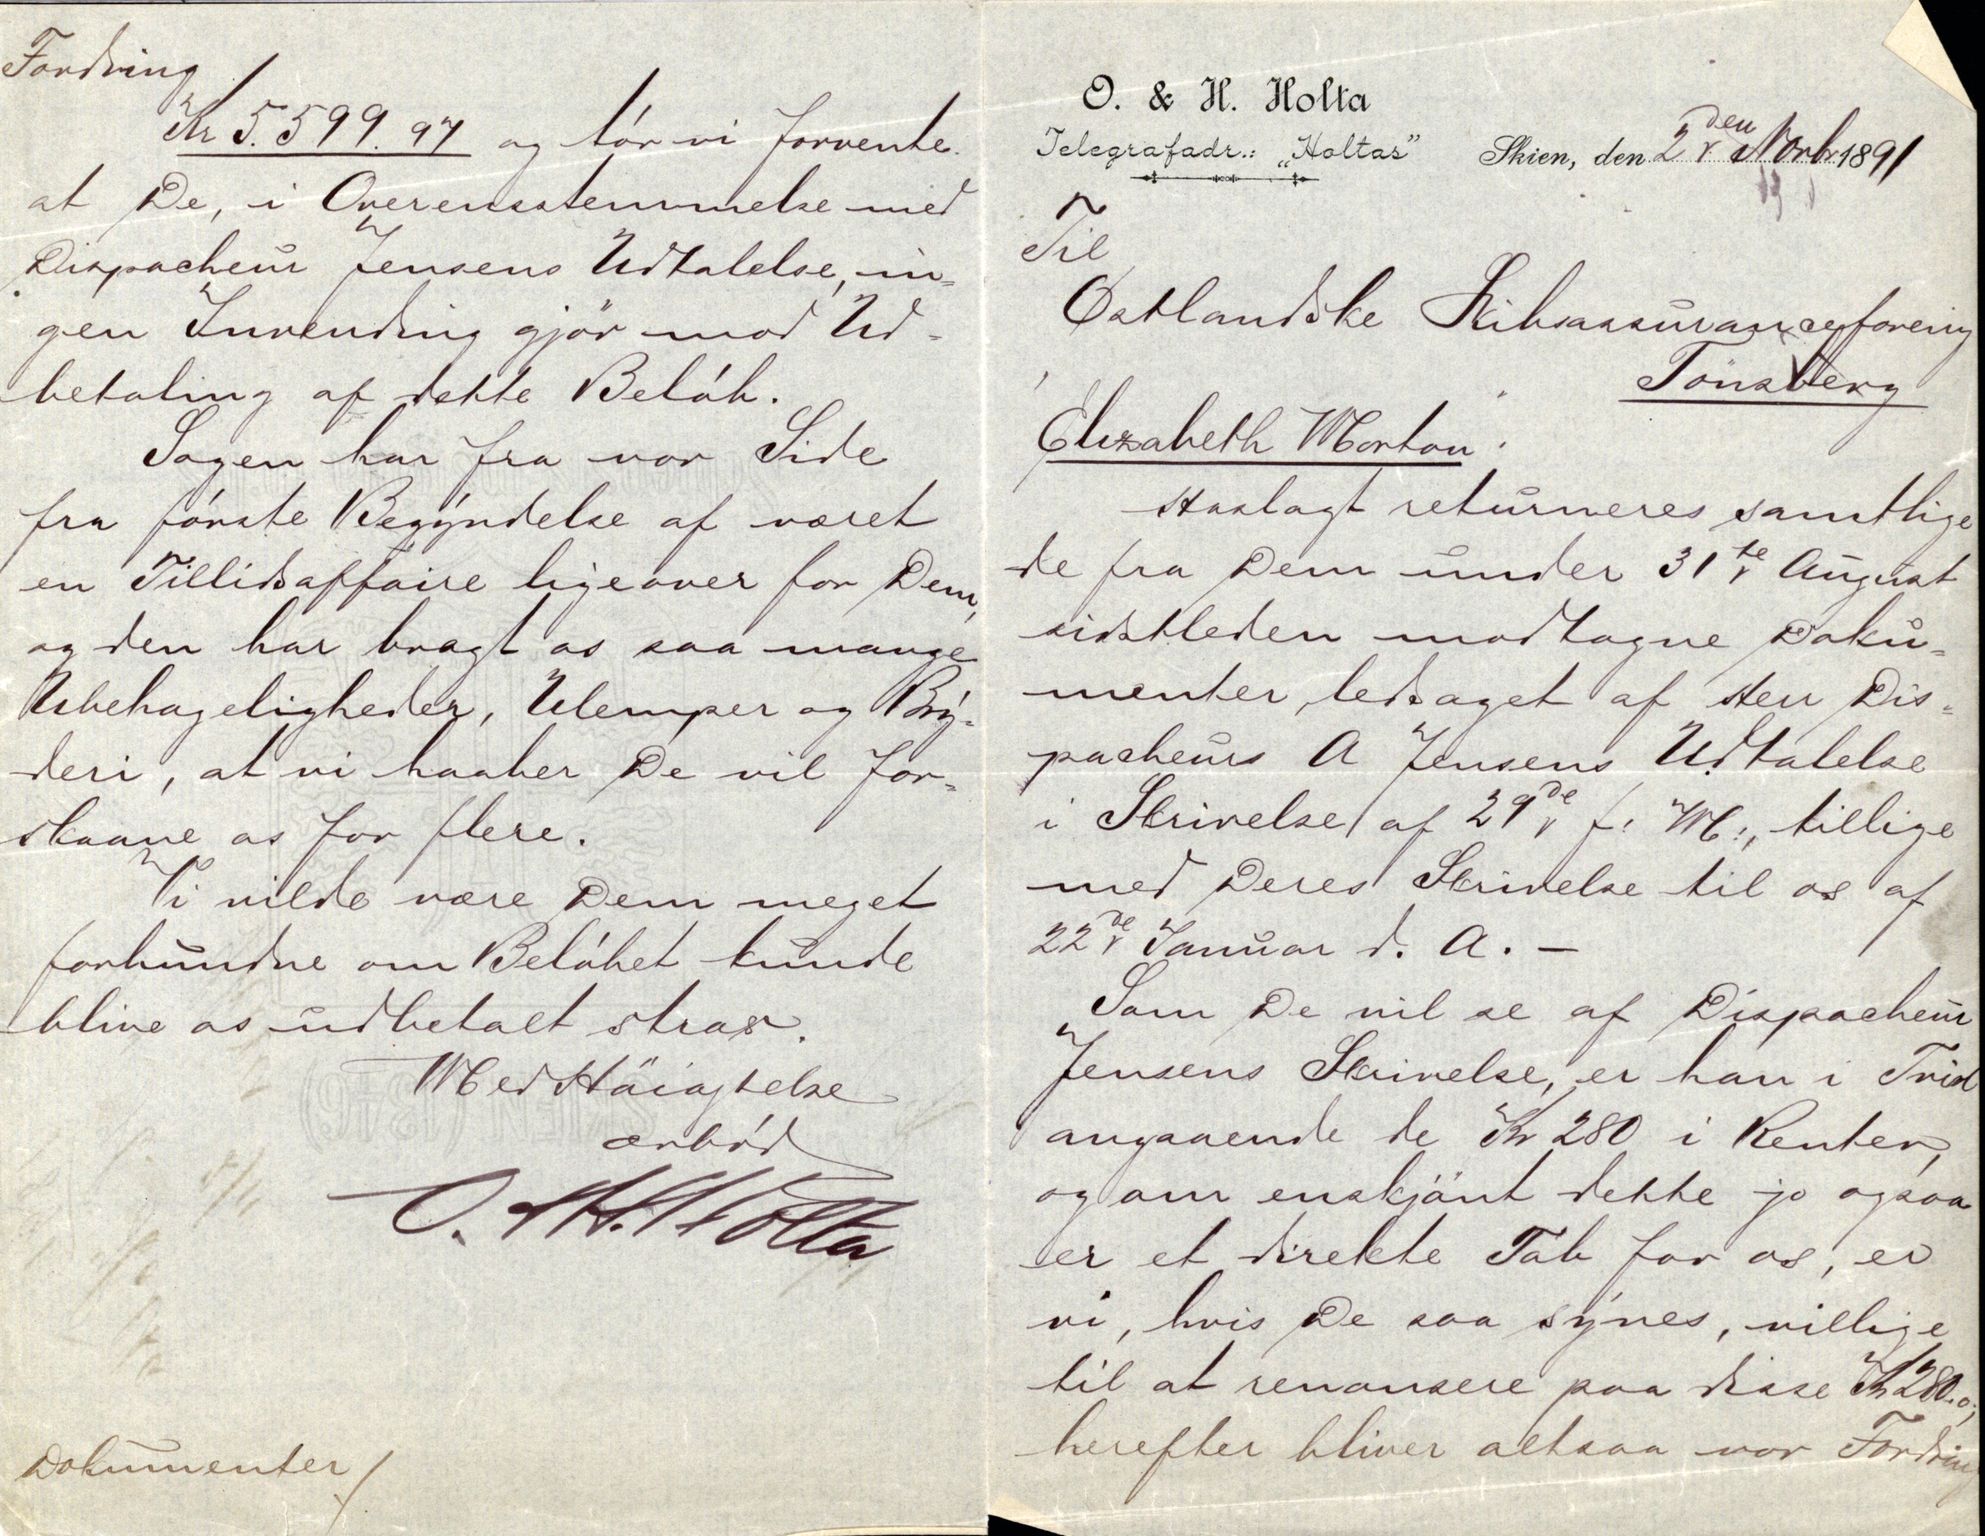 O. & H. Holta
Telegrafadr.: „Holtas”
Skien, den 2den Novbr. 1891
Til
Østlandske Skibsassuranceforening
Tönsberg
Elizabeth Morton.
Hoslagt returneres samtlige
de fra Dem under 31te August
sidstleden modtagne Doku-
menter, ledsaget af Herr Dis-
pacheurs A Jensens Udtalelse
i Skrivelse af 29de f. M., tillige
med Deres Skrivelse til os af
22de Januar d. A. —
Som De vil se af Dispacheur
Jensens Skrivelse, er han i Tvivl
angaaende de Kr 280 i Renter,
og om enskjönt dette jo ogsaa
er et direkte Tab for os, er
vi, hvis De saa synes, villige
til at renonsere paa disse Kr 280.
herefter bliver altsaa vor Fordring
Fordring
Kr 5.599.97 og tör vi forvente
at De, i Overensstemmelse med
Dispacheur Jensens Udtalelse, in-
gen Invending gjör mod Ud-
betaling af dette Belöb.
Sagen har fra vor Side
fra förste Begyndelse af været
en Tillidsaffaire ligeover for Dem,
og den har bragt os saa mange
Ubehageligheder, Ulemper og Bry-
deri, at vi haaber De vil for-
skaane os for flere.
Vi vilde være Dem meget
forbundne om Belöbet kunde
blive os udbetalt strax.
Med Höiagtelse
ærböd
O. & H. Holta
Dokumenter /